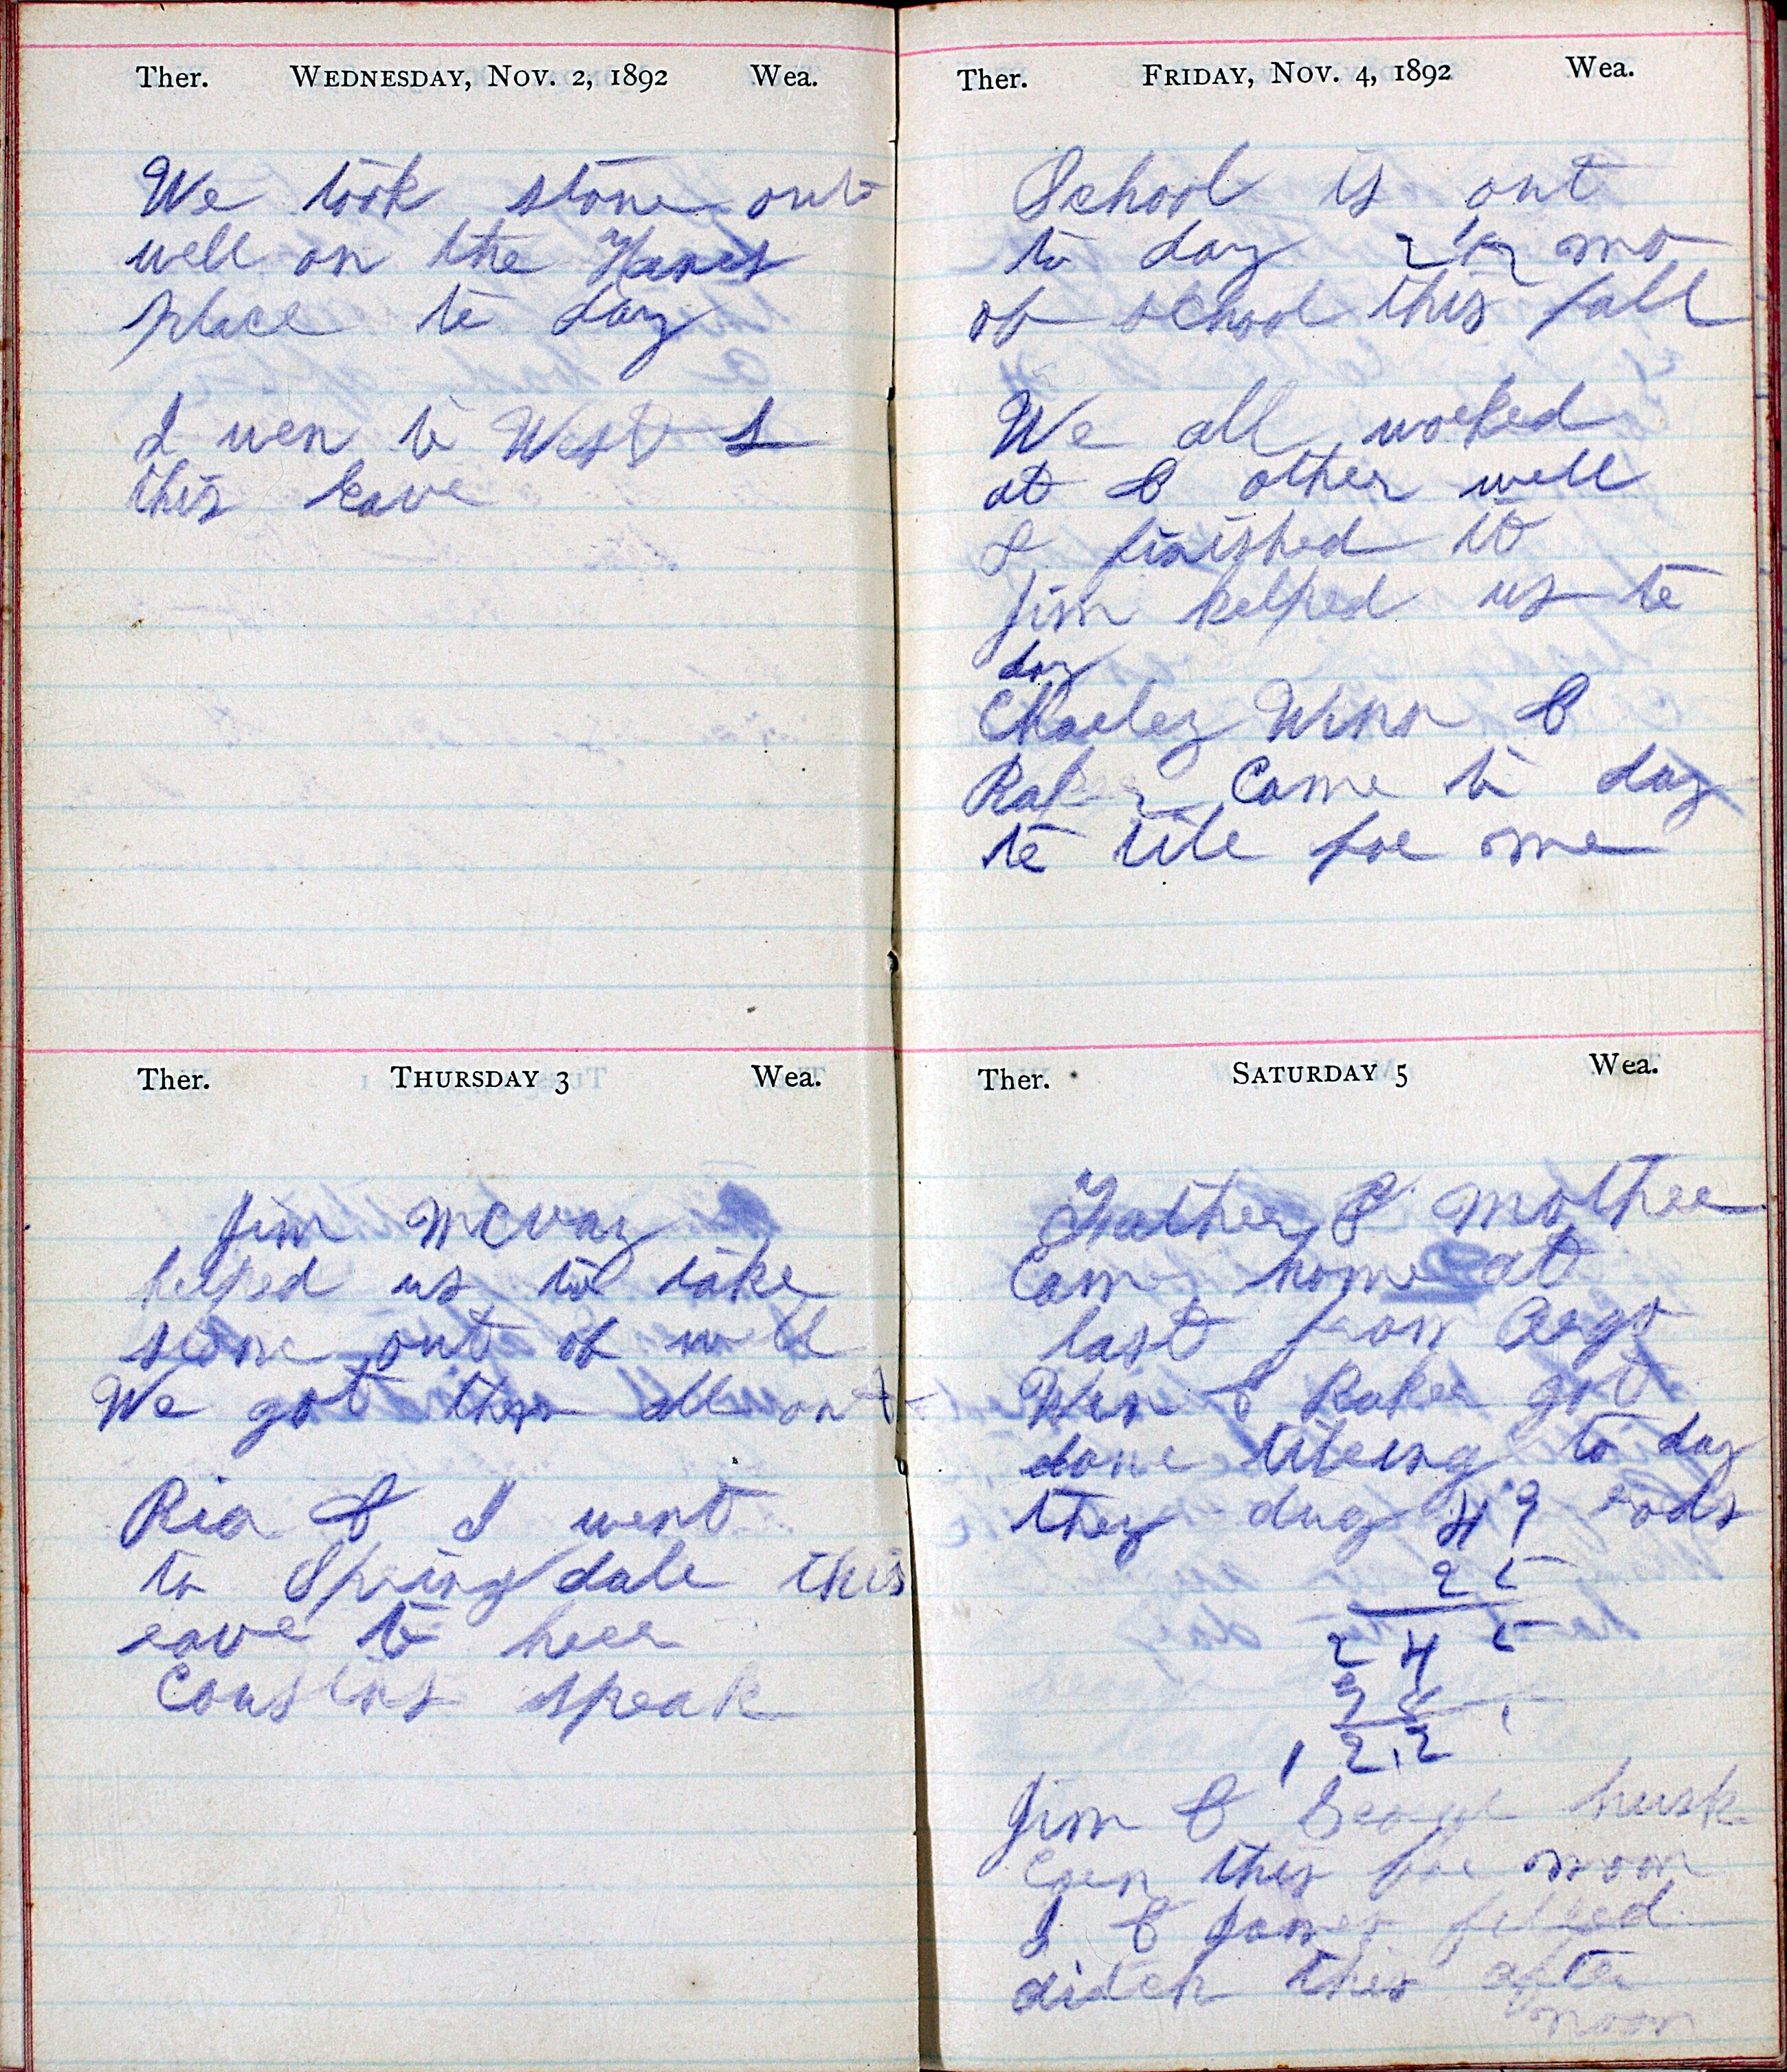 Ther. WEDNESDAY, NOV. 2, 1892 Wea.
We took stone out
well on the
place to day
I wen to West L
this eave
Ther. THURSDAY 3 Wea.
Jim McVay
helped us to take
stone out of well
We got them all out
Ria & I went
to Springdale this
eave to heer
Cousins speak
Ther. FRIDAY, NOV. 4, 1892 Wea.
School is out
to day 2 1/2 mo
of school this fall
We all worked
at & other well
& finished it
Jim helped us to
day
Charley Winn &
Raker Came to day
to tile for me
Ther. SATURDAY 5 Wea.
Father & Mother
Came home at
last from
Win & Raker got
done tileing to day
they dug 49 rods
25
245
98
12.2
Jim & George husk
Coen this for noon
I & James filled
ditch this after
noon